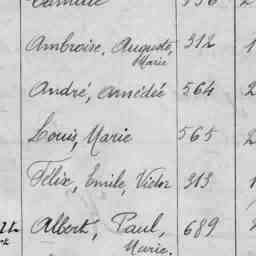 Camille 936 2
Ambroise, Auguste, 312 1
Marie
André, Amédée 564 2
Louis, Marie 565 2
Félix, Emile, Victor 313 1
Albert, Paul, 689
Marie.